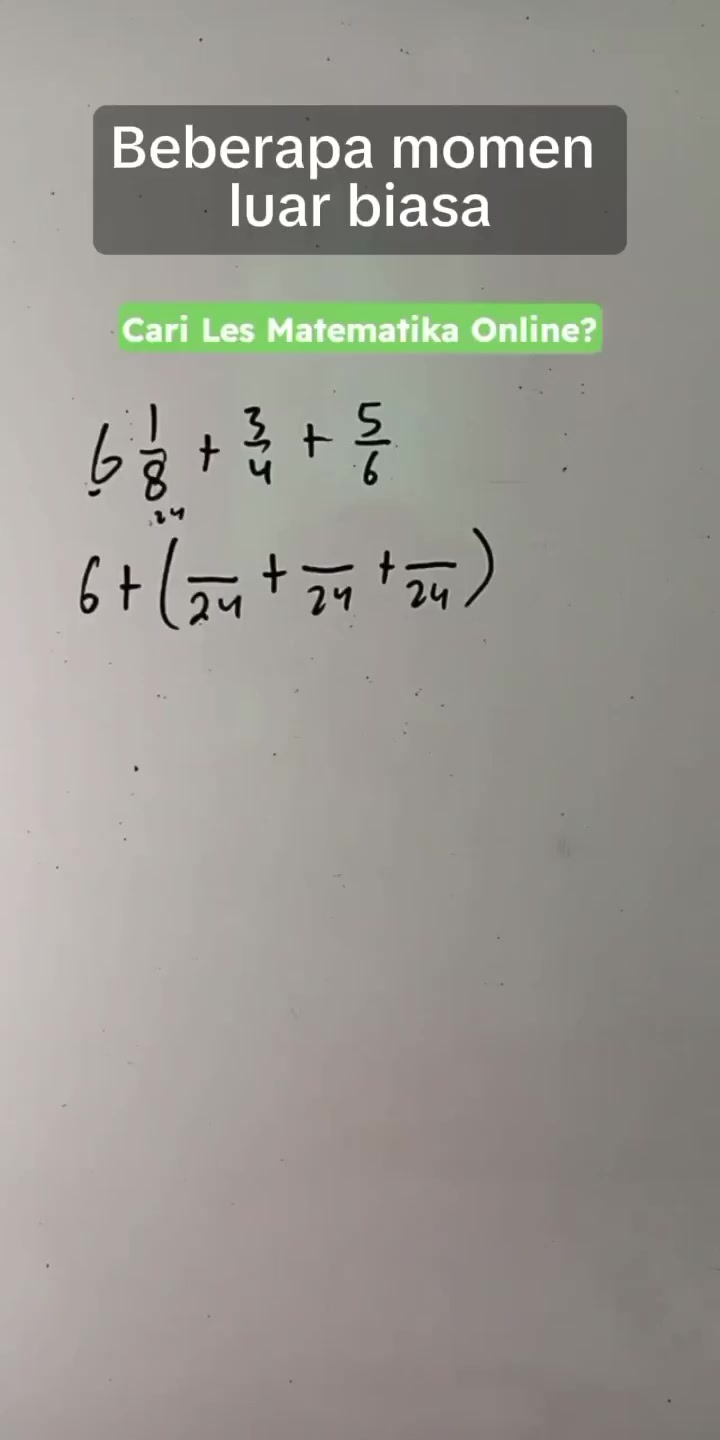 Beberapa momen
luar biasa
Cari Les Matematika Online?
6 1/8 + 3/4 + 5/6
24
6 + ( /24 + /24 + /24 )